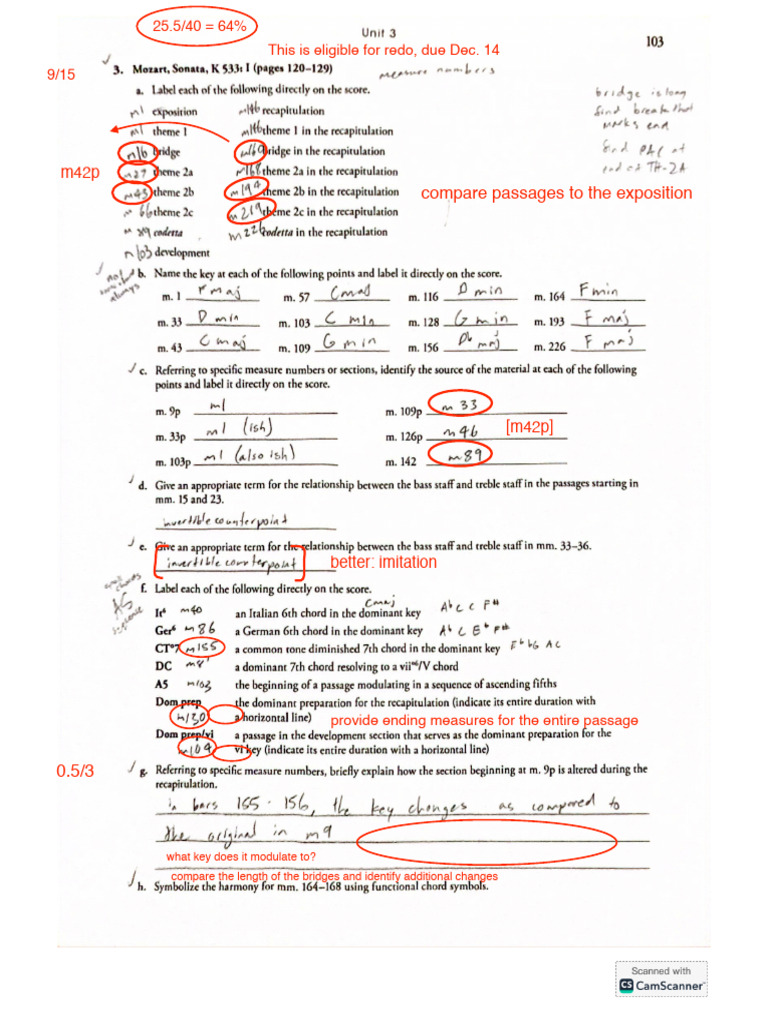 25.5/40 = 64%
Unit 3
103
This is eligible for redo, due Dec. 14
9/15
3. Mozart, Sonata, K 533: I (pages 120–129)
measure numbers
a. Label each of the following directly on the score.
bridge is long
find break that
marks end
find PAC at
end of TH-2A
m1 exposition m146 recapitulation
m1 theme 1 m146 theme 1 in the recapitulation
m16 bridge m169 bridge in the recapitulation
m42p
m27 theme 2a m168 theme 2a in the recapitulation
m43 theme 2b m194 theme 2b in the recapitulation
compare passages to the exposition
m66 theme 2c m219 theme 2c in the recapitulation
m89 codetta m226 codetta in the recapitulation
m103 development
always
b. Name the key at each of the following points and label it directly on the score.
m. 1 F maj m. 57 C maj m. 116 D min m. 164 F min
m. 33 D min m. 103 C min m. 128 G min m. 193 F maj
m. 43 C maj m. 109 G min m. 156 Db maj m. 226 F maj
c. Referring to specific measure numbers or sections, identify the source of the material at each of the following
points and label it directly on the score.
m. 9p m1 m. 109p m 33
m. 33p m1 (ish) m. 126p m46 [m42p]
m. 103p m1 (also ish) m. 142 m89
d. Give an appropriate term for the relationship between the bass staff and treble staff in the passages starting in
mm. 15 and 23.
invertible counterpoint
e. Give an appropriate term for the relationship between the bass staff and treble staff in mm. 33–36.
invertible counterpoint better: imitation
f. Label each of the following directly on the score.
A5
sequence
Cmaj
It⁶ m40 an Italian 6th chord in the dominant key Ab C C F#
Ger⁶ m86 a German 6th chord in the dominant key Ab C Eb F#
CT°⁷ m155 a common tone diminished 7th chord in the dominant key Eb Gb A C
DC m8 a dominant 7th chord resolving to a vii°⁶/V chord
A5 m103 the beginning of a passage modulating in a sequence of ascending fifths
Dom prep the dominant preparation for the recapitulation (indicate its entire duration with
m130 a horizontal line) provide ending measures for the entire passage
Dom prep/vi a passage in the development section that serves as the dominant preparation for the
m109 vi key (indicate its entire duration with a horizontal line)
0.5/3
g. Referring to specific measure numbers, briefly explain how the section beginning at m. 9p is altered during the
recapitulation.
in bars 155-156, the key changes as compared to
the original in m9
what key does it modulate to?
compare the length of the bridges and identify additional changes
h. Symbolize the harmony for mm. 164–168 using functional chord symbols.
Scanned with
CS CamScanner